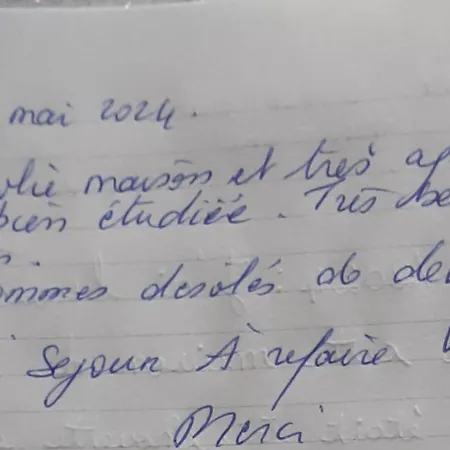 mai 2024.
olie maison et très ap
bien étudiée. Très be
ommes desolés de de
Sejour À refaire
Merci